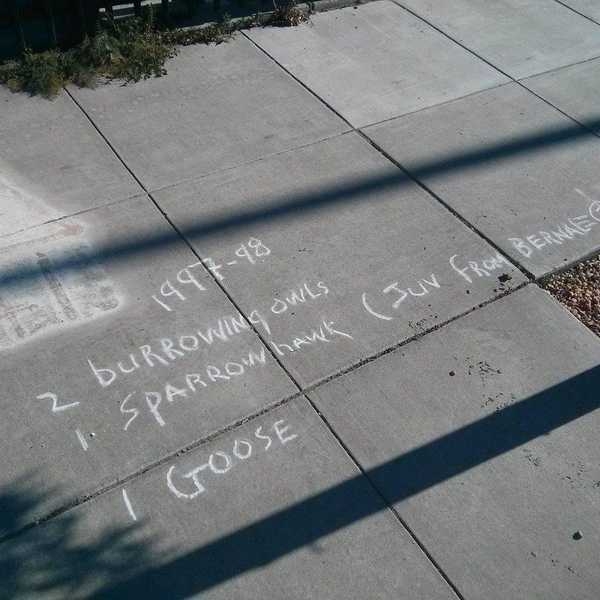 1997-98
2 BURROWING OWLS
1 SPARROWhAWK (JUV FROM BERNAL
1 GOOSE